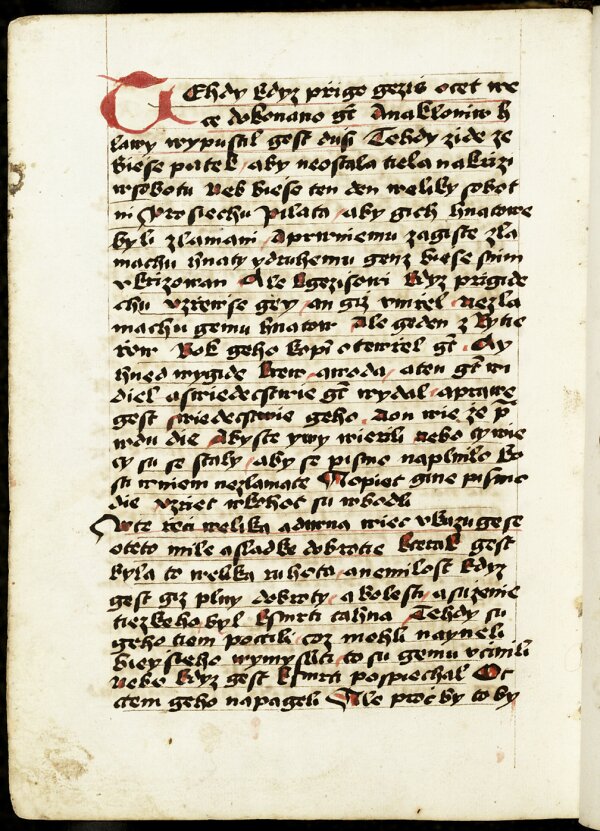 TEhdy kdyz prigo gezis ocet we
ce dokonano gt Anakloniw h
lawy wypustil gest dus Tehdy zide ze
biese patek aby neostala tiela nakrizi
wsobotu Neb biese ten den weliky sobot
ni Prosiechu Pilata aby gich hnatowe
byli zlamani Aprwniemu zagiste zla
machu hnaty ydruhemu genz biese snim
vkrizowan Ale kgezisowi kdyz prigide
chu vzrewse gey an giz vmrel nezla
machu gemu hnatow Ale geden z Rytie
row bok geho kopi otewrel gt Ay
hned wygide krew awoda aten gt wi
diel aswiedecstwie gt wydal aprawe
gest swiedecstwie geho Aon wie ze p
wdu die Abyste ywy wierili nebo ty wie
cy su se staly aby se pismo naplnilo ko
sti wniem nezlamate Aopiet gine pismo
die vzriet wkohot su wbodli
Wte reci welika adiwna wiec vkazuge se
oteto mile asladke dobrotie kterak gest
byla to welika ruhota anemilost kdyz
gest giz plny dobroty abolesti asuzenie
tiezkeho byl ksmrti tahna Tehdy su
geho tiem poctili coz mohli nayneli
bieyssieho wymysliti to su gemu vcinili
nebo kdyz gest ksmrti pospiechal Oc
tem geho napageli Ale proc by to by